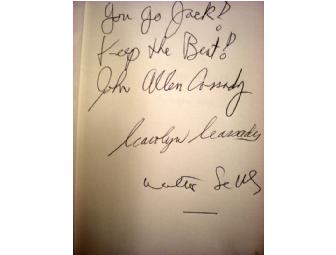 You Go Jack!
Keep the Beat!
John Allen Cassady
Carolyn Cassady
Walter Salles